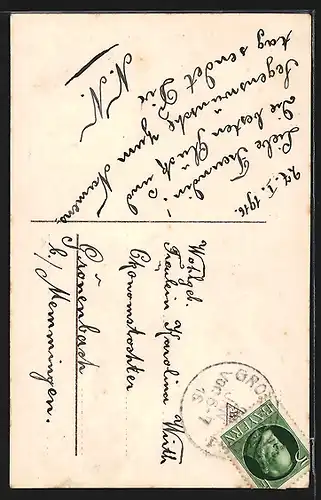 27. I. 1916.
Liebe Freundin!
Die besten Glück und
Segenswünsche zum Namens-
tag sendet Dir
N. N.
Wohlgeb.
Fräulein Karolina Wirth
Ökonomstochter
Grönenbach
b/ Memmingen.
GRÖ
6-7
16
BAYERN
5